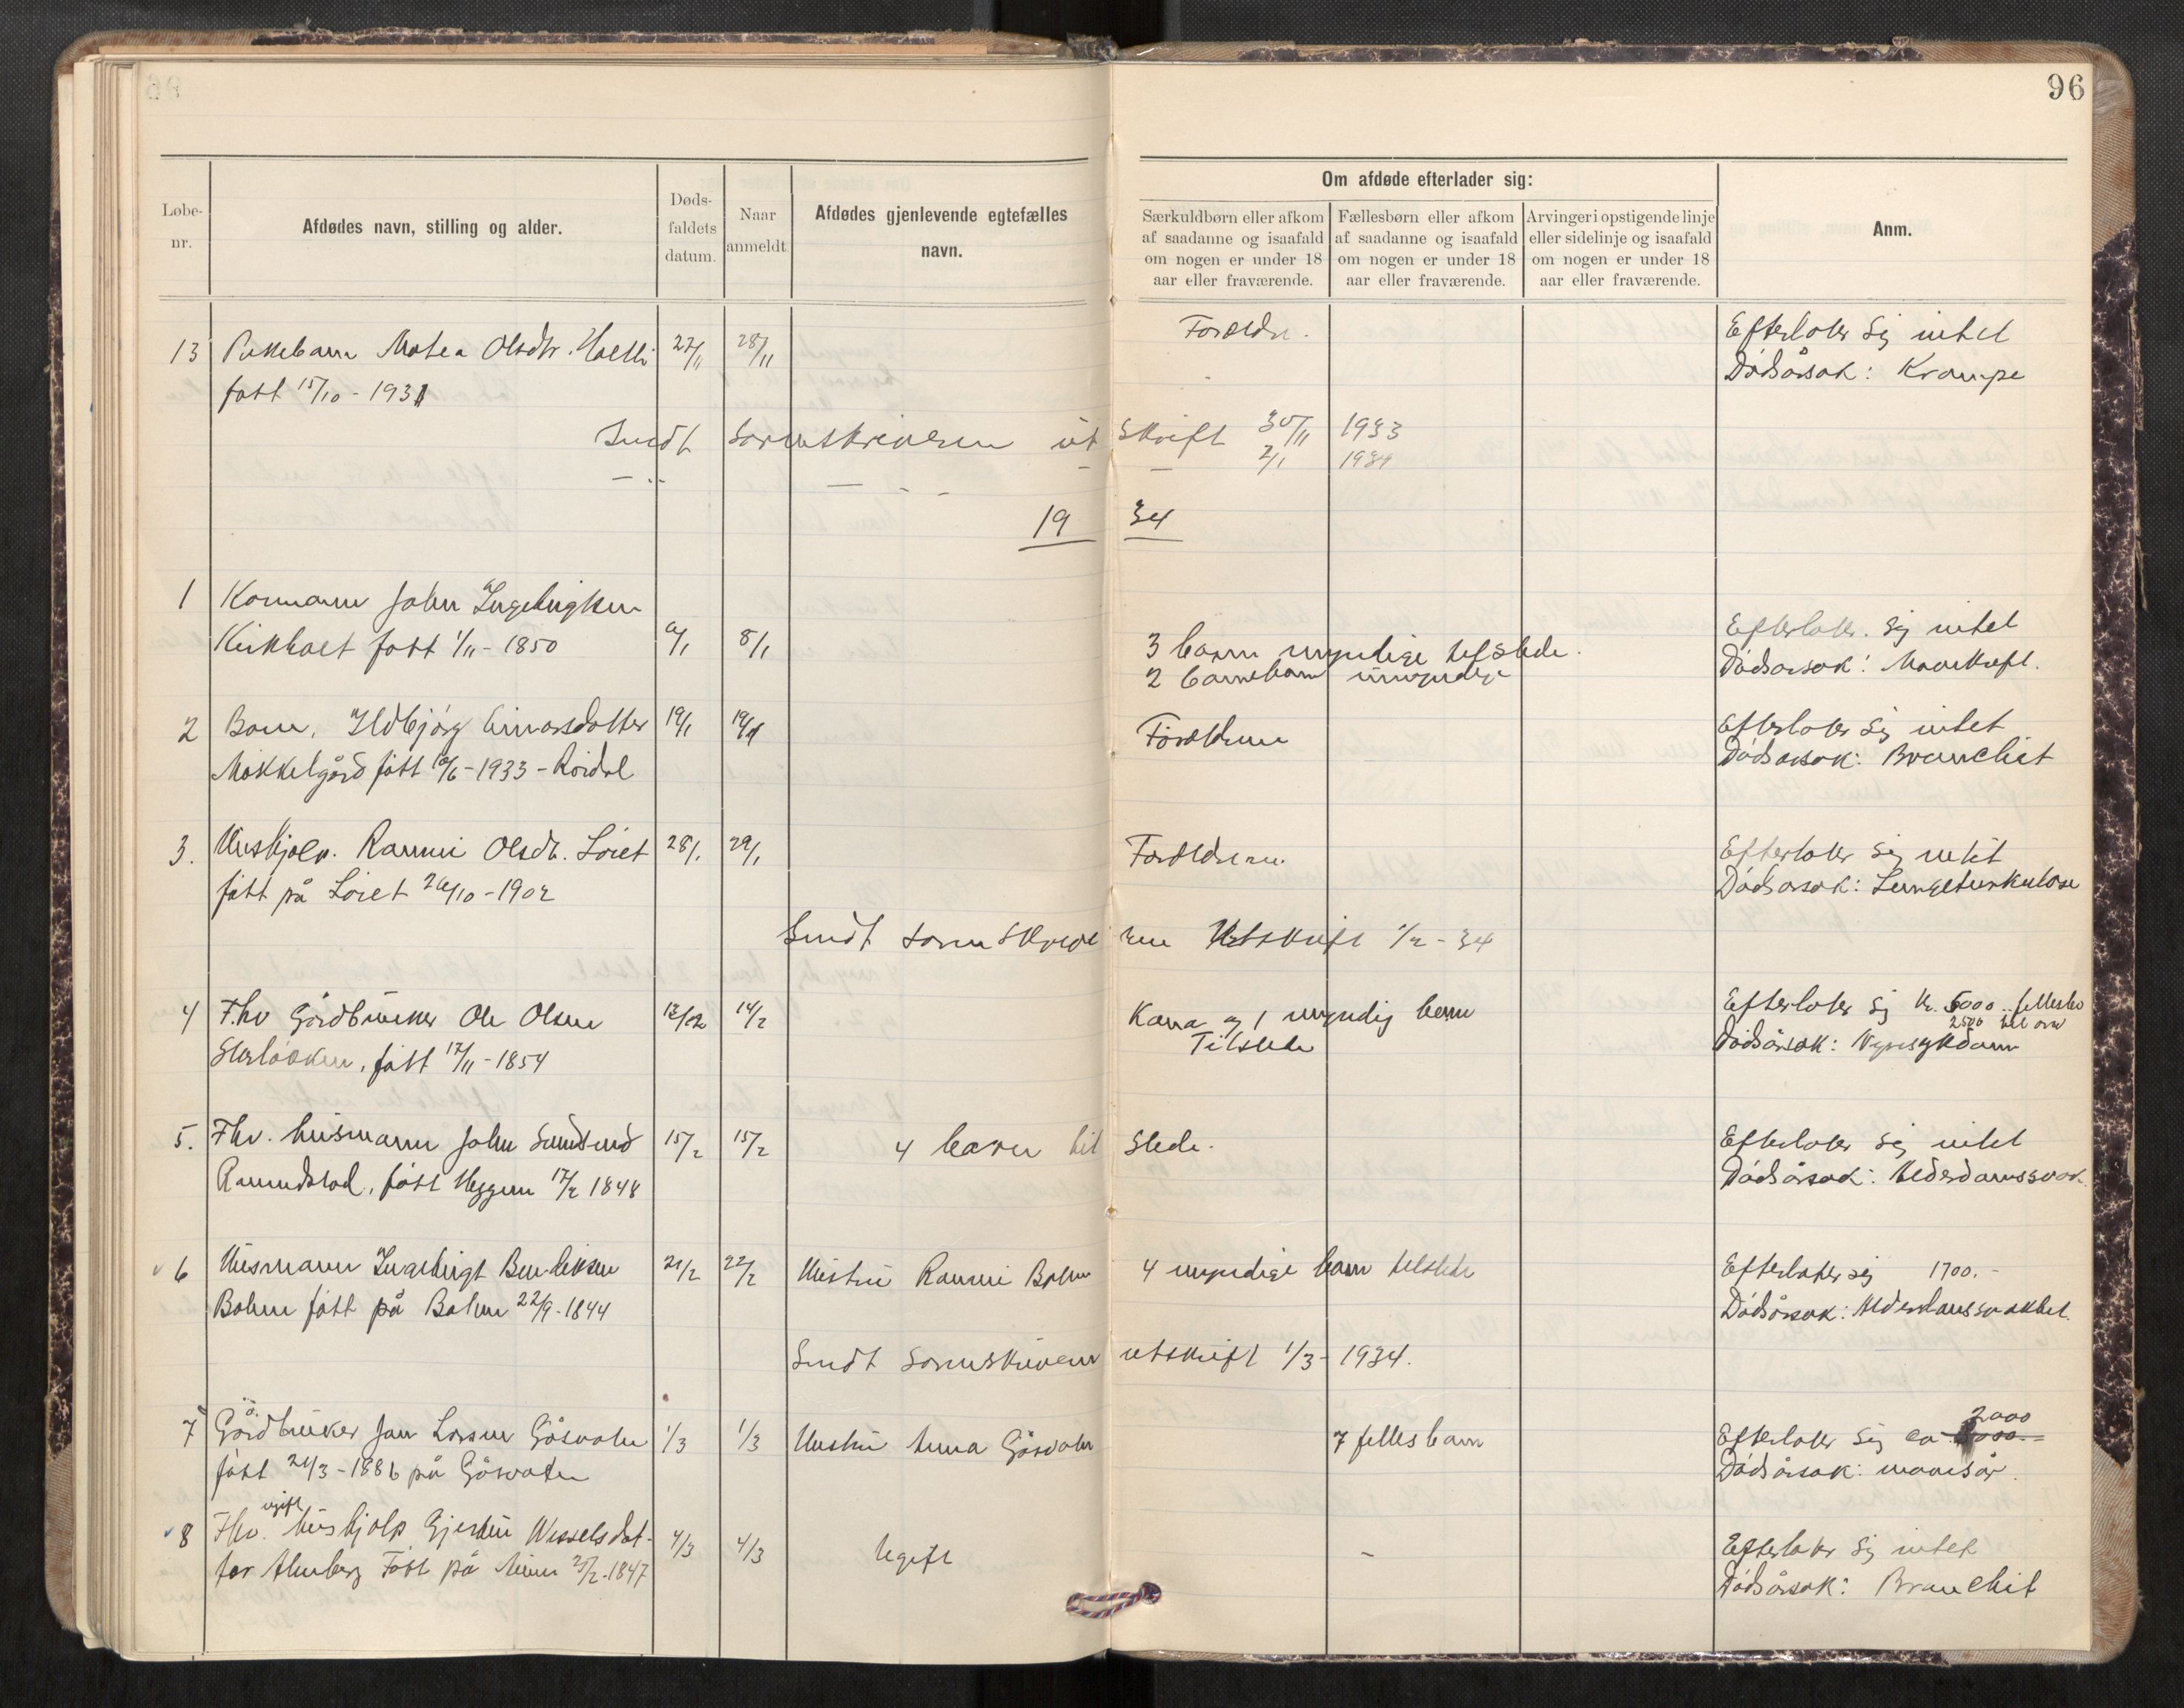 96
Løbe-
nr.
Afdødes navn, stilling og alder.
Døds-
faldets
datum.
Naar
anmeldt
Afdødes gjenlevende egtefælles
navn.
Om afdøde efterlader sig:
Særkuldbørn eller afkom
af saadanne og isaafald
om nogen er under 18
aar eller fraværende.
Fællesbørn eller afkom
af saadanne og isaafald
om nogen er under 18
aar eller fraværende.
Arvinger i opstigende linje
eller sidelinje og isaafald
om nogen er under 18
aar eller fraværende.
Anm.
13 Pikebarn Matea Olsdtr. 27/11 28/11 Foreldre. Efterlater sig intet
født 15/10 - 1931 Dødsårsak: Krampe
Sendt sorenskriveren utskrift 30/11 1933
— " — — - - - — 2/1 1934
1934
1 Kårmann John Ingebrigtsen
Kirkholt født 1/11 - 1850 6/1 8/1 3 barn myndige tilstede. Efterlater sig intet
2 barnebarn umyndige Dødsårsak:
2 Barn, Ildbjørg Einarsdatter 19/1 19/1 Foreldrene Efterlater sig intet
Mokkelgård født /6 - 1933 - Dødsårsak: Bronchit
3. Hushjelp. Ranni Olsdtr. Løset 28/1 29/1 Foreldrene. Efterlater sig intet
født på Løset 26/10 - 1902 Dødsårsak: Lungetuberkulose
Sendt sorenskriveren Utskrift 1/2 - 34
4 F.hv Gårdbruker Ole Olsen 13/2 14/2 Kona og 1 myndig barn Efterlater sig kr. 5000 fellesbo
født 17/11 - 1854 Tilstede 2500 til arv
Dødsårsak: Nyresykdom
5. Fhv. husmann John 15/2 15/2 4 barn tilstede. Efterlater sig intet
født Heggem 17/2 1848 Dødsårsak: Alderdomssvak
6 Husmann Ingebrigt Bendiksen 21/2 22/2 Hustru Ranni Bolme 4 myndige barn tilstede Efterlater sig 1700.-
Bolme født på Bolme 22/9 - 1844 Dødsårsak: Alderdomssvakhet
Sendt Sorenskriveren utskrift 1/3 - 1934.
7 Gårdbruker Jon Larsen Gåsvatn 1/3 1/3 Hustru Anna Gåsvatn 7 felles barn Efterlater sig ca 2000
født 24/3 - 1886 på Gåsvatn Dødsårsak: mavesår.
8 Fhv. ugift hushjelp Gjertru Wesselsdat- 4/3 4/3 Ugift — Efterlater sig intet
ter Almberg Født på 25/2 - 1847 Dødsårsak: Bronchit